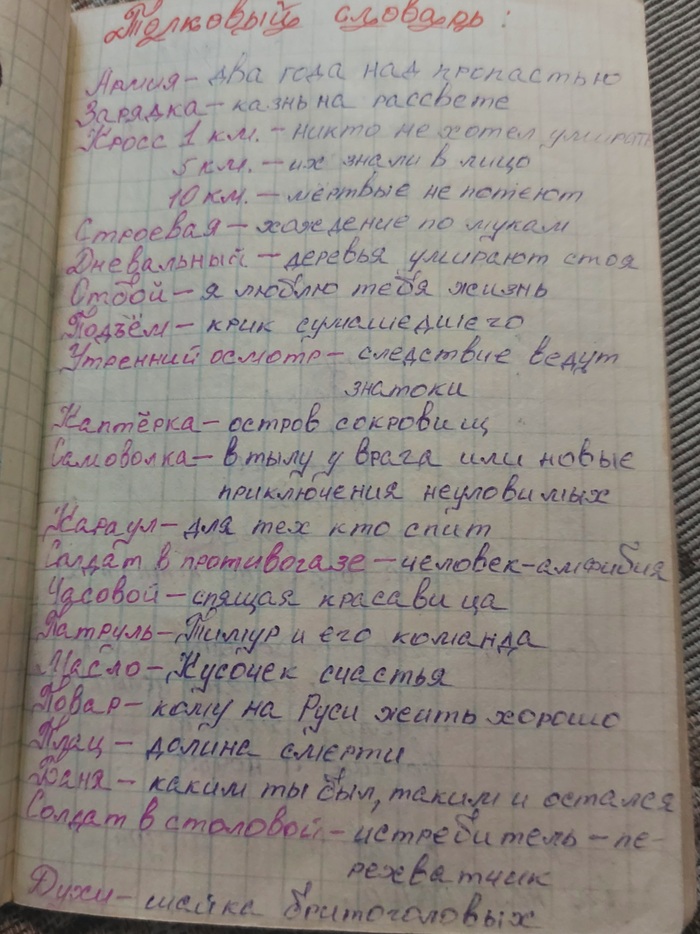 Толковый словарь:
Армия – два года над пропастью
Зарядка – казнь на рассвете
Кросс 1 км. – никто не хотел умирать
5 км. – их знали в лицо
10 км. – мёртвые не потеют
Строевая – хождение по мукам
Дневальный – деревья умирают стоя
Отбой – я люблю тебя жизнь
Подъём – крик сумасшедшего
Утренний осмотр – следствие ведут
знатоки
Каптёрка – остров сокровищ
Самоволка – в тылу у врага или новые
приключения неуловимых
Караул – для тех кто спит
Солдат в противогазе – человек-амфибия
Часовой – спящая красавица
Патруль – Тимур и его команда
Масло – Кусочек счастья
Повар – кому на Руси жить хорошо
Плац – долина смерти
Баня – каким ты был, таким и остался
Солдат в столовой – истребитель – пе-
рехватчик
Духи – шайка бритоголовых